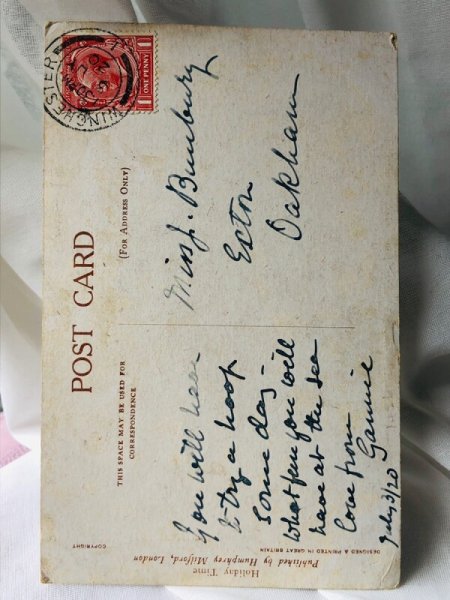 POST CARD
THIS SPACE MAY BE USED FOR
CORRESPONDENCE
(FOR ADDRESS ONLY)
ONE PENNY
WINCHESTER
You will have
to try a hoop
some day –
What fun you will
have at the sea
Love from
Gannie
July 3/20
Miss J. Bunbury
Exton
Oakham
COPYRIGHT
DESIGNED & PRINTED IN GREAT BRITAIN
Holiday Time
Published by Humphrey Milford, London